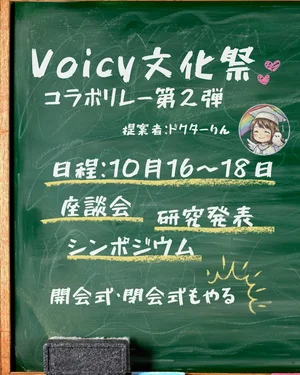 Voicy文化祭
コラボリレー第2弾
提案者:ドクターりん
日程:10月16〜18日
座談会
研究発表
シンポジウム
開会式・閉会式もやる